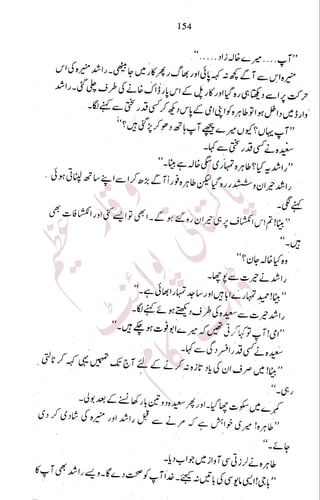 154
"آپ..... میرے خالہ زاد....."
منیرہ اس سے آگے کچھ نہ کہہ پائی اور بھاگ کر پھر کار میں جا بیٹھی۔ راشد منیرہ کی اس
حرکت پر اسے دیکھتا ہی رہ گیا اور کار پل کے اس پار ڈاک خانے کی طرف چلی گئی۔ راشد
وارڈ میں داخل ہوا تو طاہرہ کو اپنی امی کے پاس دیکھ کر کسی قدر سختی سے کہنے لگا۔
"آپ یہاں؟ کیوں میرے پیچھے آپ ہاتھ دھو کر پڑ گئی ہیں؟"
سعیدہ نے کسی قدر سختی سے کہا۔
"راشد یہ کیا؟ طاہرہ تمہاری سگی خالہ ہے بیٹا۔"
راشد حیران و ششدر رہ گیا لیکن طاہرہ فوراً آگے بڑھ کر اسے اپنے ساتھ لپٹاتی ہوئی
کہنے لگی۔
"بیٹا! تم اس انکشاف پر ہی حیران رہ گئے ہو گے۔ ابھی تو ایسے کئی اور انکشافات بھی
ہیں۔"
وہ کیا خالہ جان؟"
راشد نے حیرت سے پوچھا۔
"بیٹا! حمید تمہارے ابا ہیں اور ساجد تمہارا بھائی ہے۔"
راشد حیرت سے سعیدہ کی طرف دیکھتے ہوئے کہنے لگا۔
"امی! آپ تو کہا کرتی تھیں کہ میرے ابو فوت ہو چکے ہیں۔"
سعیدہ نے کسی قدر افسردگی سے کہا۔
"بیٹا! میں صرف ان کی یاد تازہ نہ کرنے کے لئے آج تک تمہیں یہی کہہ کر ٹالتی
رہی۔"
کمرے میں سکوت چھا گیا۔ اور پھر سعیدہ دو تین بار کھانسنے کے بعد بولی۔
"طاہرہ! میری خواہش ہے کہ مرنے سے قبل راشد اور منیرہ کی شادی کر دی
جائے۔"
طاہرہ نے لرزتی سی آواز میں جواب دیا۔
"باجی! ایسی مایوسی کی باتیں نہ کیجئے۔ خدا آپ کو صحت دے گا۔ ویسے راشد بھی آپ کا